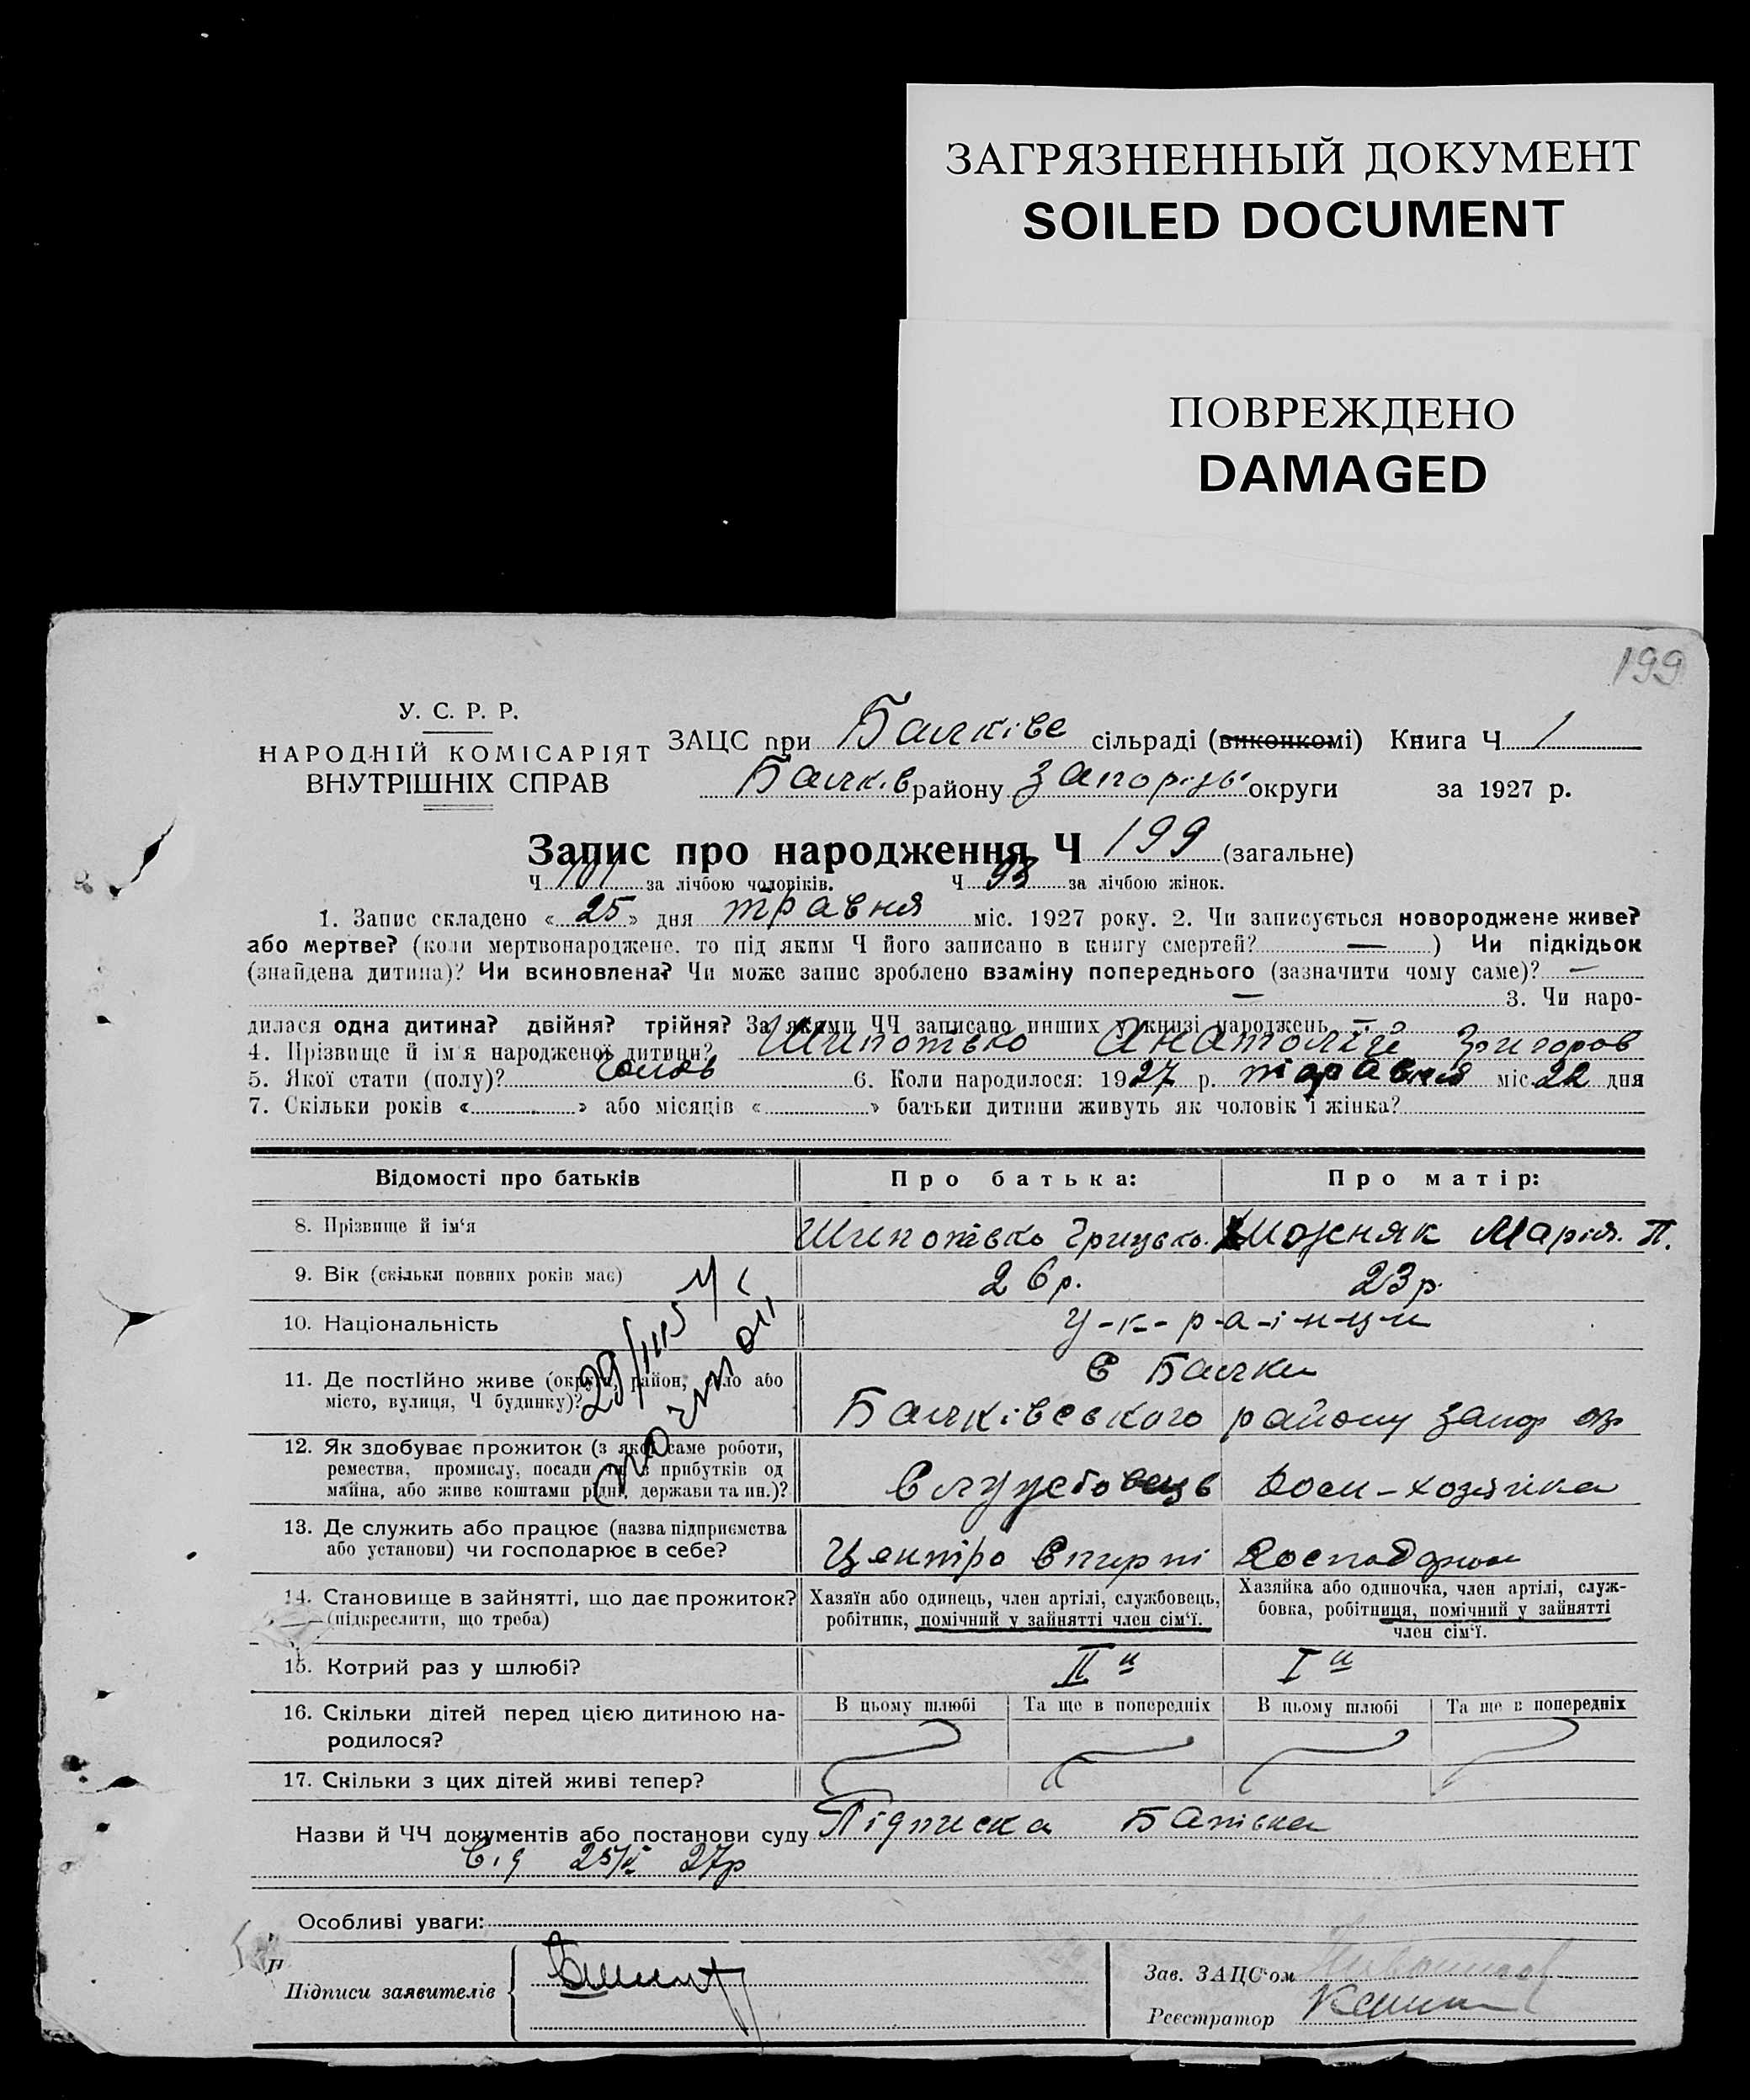 ЗАГРЯЗНЕННЫЙ ДОКУМЕНТ
SOILED DOCUMENT
ПОВРЕЖДЕНО
DAMAGED
199
У. С. Р. Р.
НАРОДНІЙ КОМІСАРІЯТ
ВНУТРІШНІХ СПРАВ
ЗАЦС при Балківс сільраді (виконкомі) Книга Ч 1
Балків району Запорізь округи за 1927 р.
Запис про народження Ч 199 (загальне)
Ч 101 за лічбою чоловіків. Ч 98 за лічбою жінок.
1. Запис складено « 25 » дня травня міс. 1927 року. 2. Чи записується новороджене живе?
або мертве? (коли мертвонароджене, то під яким Ч його записано в книгу смертей? — ) Чи підкідьок
(знайдена дитина)? Чи всиновлена? Чи може запис зроблено взаміну попереднього (зазначити чому саме)? —
— 3. Чи наро-
дилася одна дитина? двійня? трійня? За якими ЧЧ записано инших у книзі народжень —
4. Прізвище й ім'я народженої дитини? Шипотько Анатолій Григоров
5. Якої стати (полу)? 6. Коли народилося: 1927 р. травня міс. 22 дня
7. Скільки років « » або місяців « » батьки дитини живуть як чоловік і жінка?
Відомості про батьків Про батька: Про матір:
8. Прізвище й ім'я Шипотько Грицько. Марія. П.
9. Вік (скільки повних років має) 26 р. 23 р.
10. Національність У-к-р-а-ї-н-ц-и
11. Де постійно живе (округа, район, село або
місто, вулиця, Ч будинку)?
С Балки
Балківського району Запор окр
12. Як здобуває прожиток (з якої саме роботи,
ремества, промислу, посади чи з прибутків од
майна, або живе коштами рідні, держави та ин.)?
Дом-хозяйка
13. Де служить або працює (назва підприємства
або установи) чи господарює в себе?
Центро Спирт
14. Становище в зайнятті, що дає прожиток?
(підкреслити, що треба)
Хазяїн або одинець, член артілі, службовець,
робітник, помічний у зайнятті член сім'ї.
Хазяйка або одиночка, член артілі, служ-
бовка, робітниця, помічний у зайнятті
член сім'ї.
15. Котрий раз у шлюбі? II й I й
16. Скільки дітей перед цією дитиною на-
родилося?
В цьому шлюбі Та ще в попередніх В цьому шлюбі Та ще в попередніх
17. Скільки з цих дітей живі тепер?
Назви й ЧЧ документів або постанови суду Підписка Батька
Від 25/V 27р
Особливі уваги:
Підписи заявителів
Зав. ЗАЦС'ом
Реєстратор